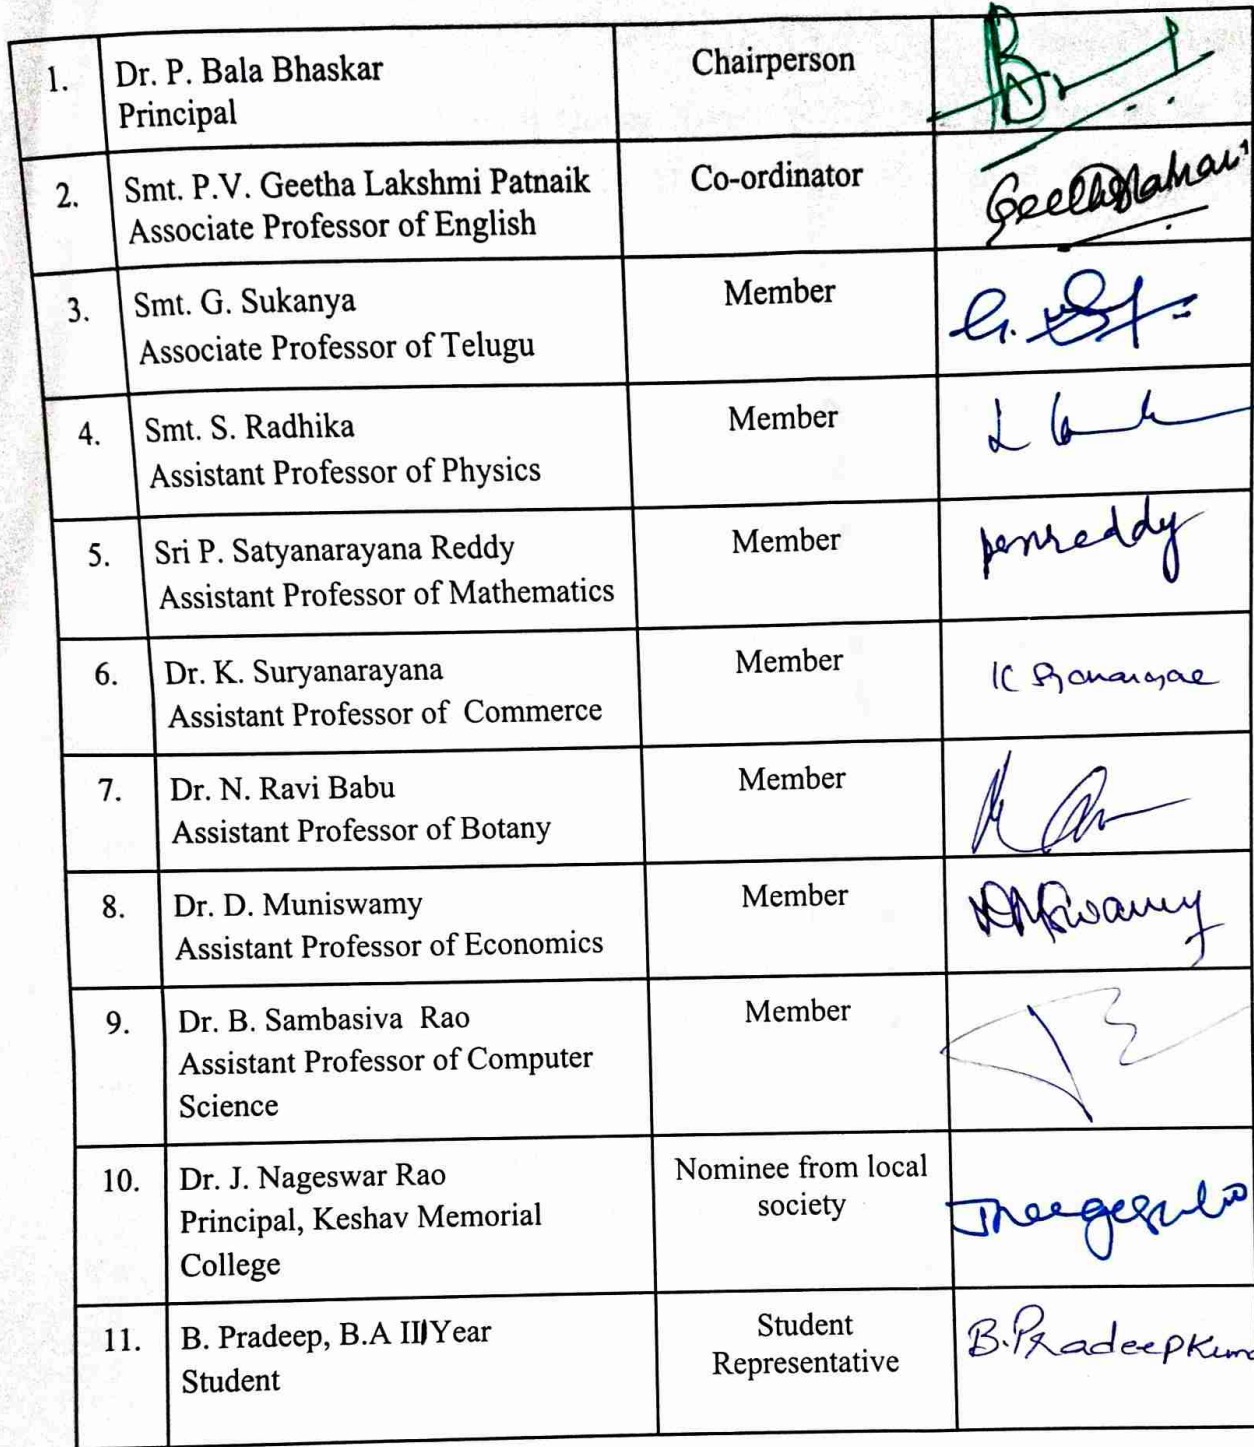 1.
Dr. P. Bala Bhaskar
Principal
Chairperson
2.
Smt. P.V. Geetha Lakshmi Patnaik
Associate Professor of English
Co-ordinator
3.
Smt. G. Sukanya
Associate Professor of Telugu
Member
G.
4.
Smt. S. Radhika
Assistant Professor of Physics
Member
5.
Sri P. Satyanarayana Reddy
Assistant Professor of Mathematics
Member
psnreddy
6.
Dr. K. Suryanarayana
Assistant Professor of Commerce
Member
K
7.
Dr. N. Ravi Babu
Assistant Professor of Botany
Member
8.
Dr. D. Muniswamy
Assistant Professor of Economics
Member
DMSwamy
9.
Dr. B. Sambasiva Rao
Assistant Professor of Computer
Science
Member
10.
Dr. J. Nageswar Rao
Principal, Keshav Memorial
College
Nominee from local
society
11.
B. Pradeep, B.A III Year
Student
Student
Representative
B.PradeepKuma